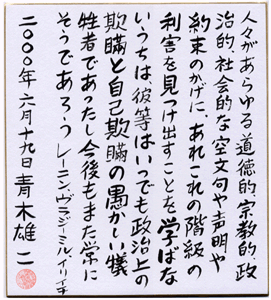 人々があらゆる道徳的、宗教的、政
治的、社会的な空文句や声明や
約束のかげに、あれこれの階級の
利害を見つけ出すことを学ばな
いうちは、彼等はいつでも政治上の
欺瞞と自己欺瞞の愚かしい犠
牲者であったし今後もまた常に
そうであろう レーニン、ヴラジーミル、イリイチ
二〇〇〇年六月十九日 青木雄二